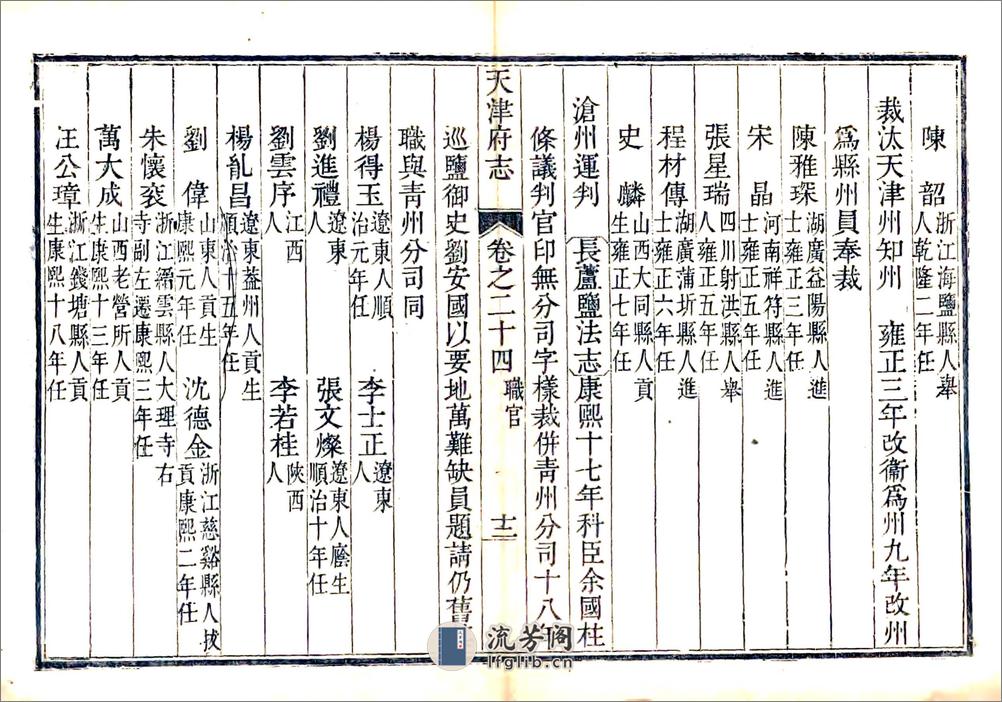 陳　韶浙江海鹽縣人舉人乾隆二年任
裁汰天津州知州　雍正三年改衞爲州九年改州
爲縣州員奉裁
陳雅琛湖廣益陽縣人進士雍正三年任
宋　晶河南祥符縣人進士雍正五年任
張星瑞四川射洪縣人舉人雍正五年任
程材傳湖廣蒲圻縣人進士雍正六年任
史　麟山西大同縣人貢生雍正七年任
滄州運判　長蘆鹽法志康熙十七年科臣余國柱
條議判官印無分司字樣裁併青州分司十八年
天津府志　卷之二十四　職官　十二
巡鹽御史劉安國以要地萬難缺員題請仍舊
職與青州分司同
楊得玉遼東人順治元年任　李士正遼東人
劉進禮遼東人　張文燦遼東人廕生順治十年任
劉雲序江西人　李若桂陝西人
楊胤昌遼東益州人貢生順治十五年任
劉　偉山東人貢生康熙元年任　沈德金浙江慈谿縣人拔貢康熙二年任
朱懷衮浙江縉雲縣人大理寺右寺副左遷康熙三年任
萬大成山西老營所人貢生康熙十三年任
汪公璋浙江錢塘縣人貢生康熙十八年任
流芳阁
lfglib.cn